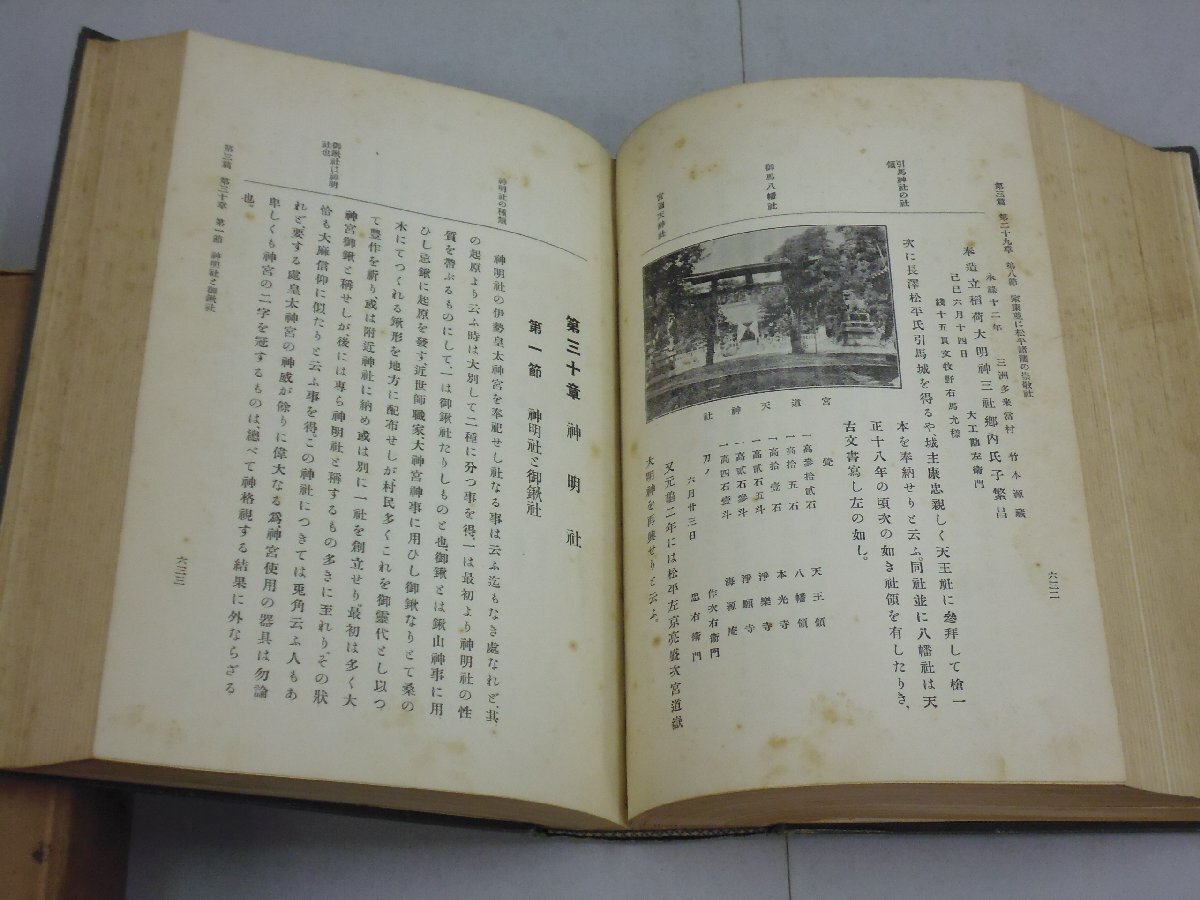 第三篇 第二十九章 第八節 家康並に松平諸流の崇敬社
六二二
引馬神社の社領
御馬八幡社
宮道天神社
奉造立稻荷大明神三社鄕內氏子繁昌
永祿十二年 三洲多米當村 竹本源藏
己巳六月十四日 大工勘左衞門
錢十五貫文牧野右馬允樣
次に長澤松平氏引馬城を得るや城主康忠親しく天王社に參拜して槍一
本を奉納せりと云ふ。同社並に八幡社は天
正十八年の頃次の如き社領を有したりき、
古文書寫し左の如し。
覺
一高參拾貳石 天王領
一高拾五石 八幡領
一高拾壹石 本光寺
一高貳石五斗 淨樂寺
一高貳石參斗 淨願寺
一高四石壹斗 海源庵
刀ノ 作次右衞門
六月廿三日 忠右衞門
又元龜二年には松平左京亮盛次宮道嶽
大明神を再興せりと云ふ。
宮道天神社
神明社の種類
御鍬社已神明社也
第三十章 神明社
第一節 神明社と御鍬社
神明社の伊勢皇太神宮を奉祀せし社なる事は云ふ迄もなき處なれど、其
の起原より云ふ時は大別して二種に分つ事を得、一は最初より神明社の性
質を帶ぶるものにして、一は御鍬社たりしものと也、御鍬とは鍬山神事に用
ひし忌鍬に起原を發す、近世師職家、大神宮神事に用ひし御鍬なりとて桑の
木にてつくれる鍬形を地方に配布せしが村民多くこれを御靈代とし以つ
て豐作を祈り或は附近神社に納め或は別に一社を創立せり、最初は多く大
神宮御鍬と稱せしが、後には專ら神明社と稱するもの多きに至れり、その狀
恰も大麻信仰に似たりと云ふ事を得。この神社につきては兎角云ふ人もあ
れど要する處皇太神宮の神威が餘りに偉大なる爲、神宮使用の器具は勿論
卑しくも神宮の二字を冠するものは、總べて神格視する結果に外ならざる
也。
第三篇 第三十章 第一節 神明社と御鍬社
六二三